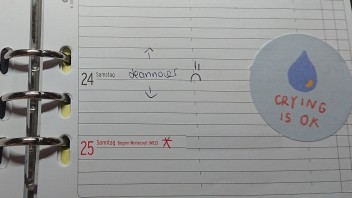 24 Samstag deannoies
CRYING
IS OK
25 Sonntag Beginn Winterzeit (MEZ)